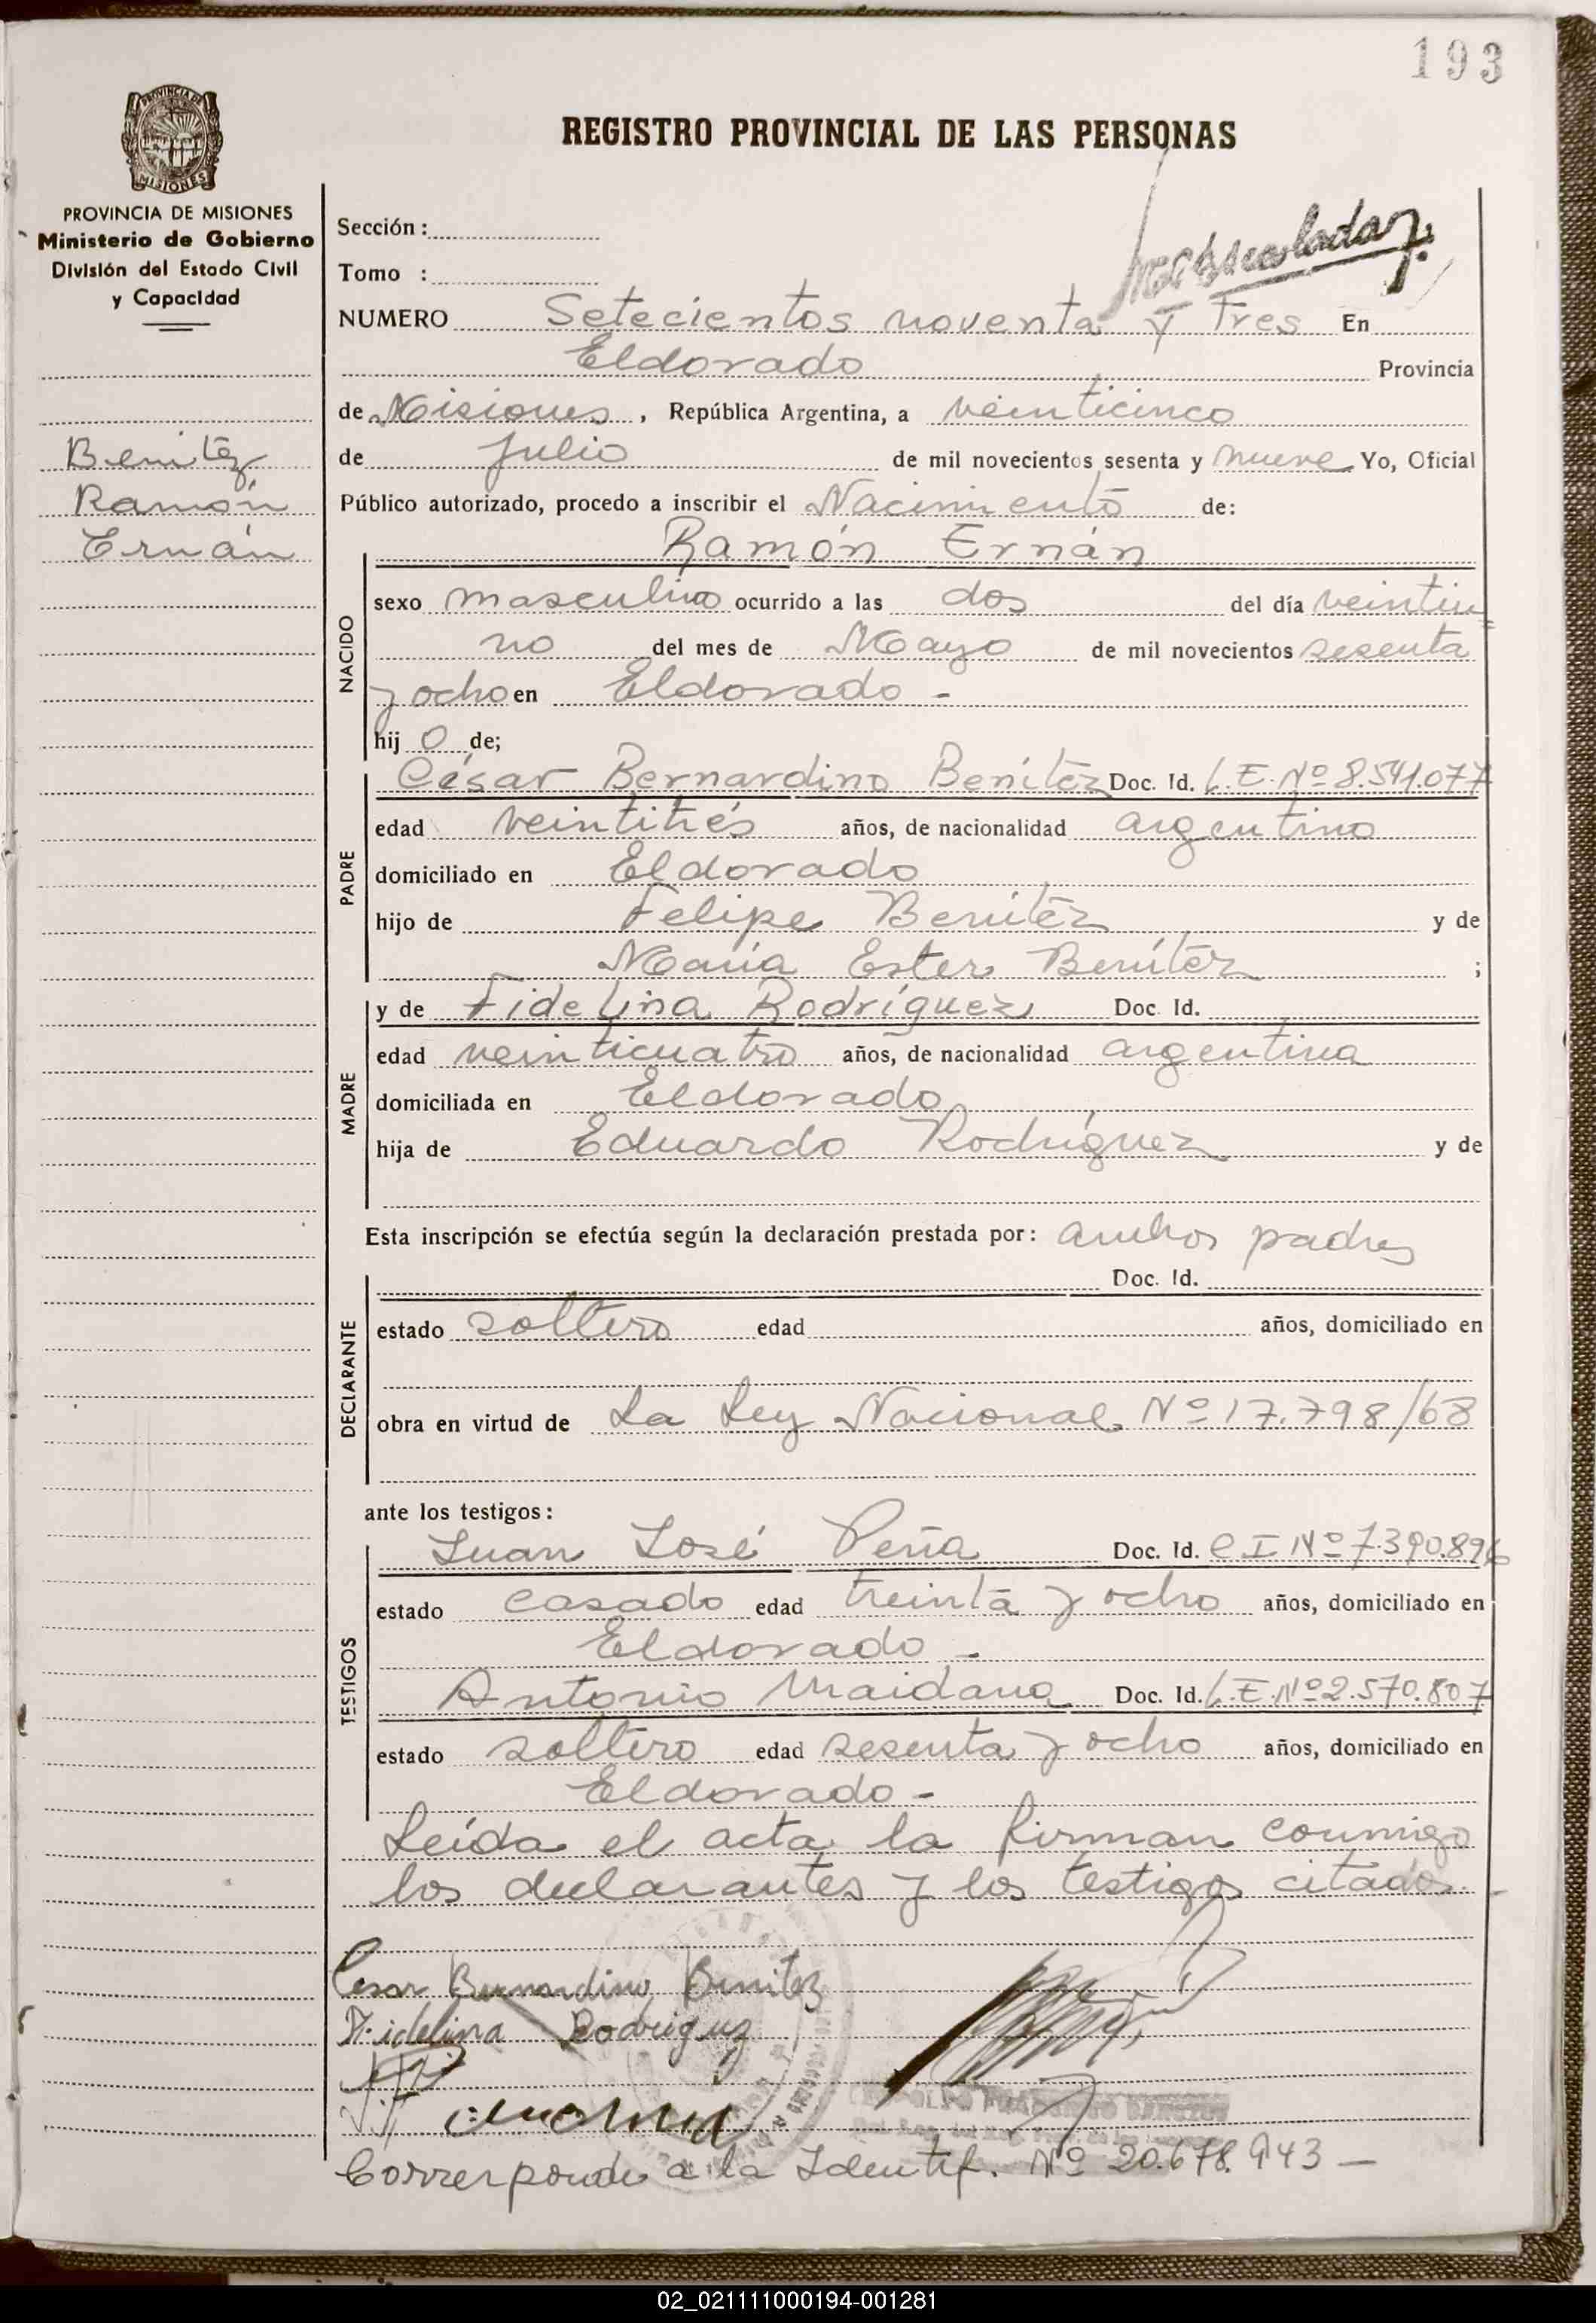 193
REGISTRO PROVINCIAL DE LAS PERSONAS
PROVINCIA DE MISIONES
MISIONES
PROVINCIA DE MISIONES
Ministerio de Gobierno
División del Estado Civil
y Capacidad
Benitez
Ramón
Ernán
Sección :
Tomo :
NUMERO Setecientos noventa y Tres En
Eldorado Provincia
de Misiones , República Argentina, a veinticinco
de Julio de mil novecientos sesenta y nueve Yo, Oficial
Público autorizado, procedo a inscribir el Nacimiento de:
Ramón Ernán
NACIDO
sexo masculino ocurrido a las dos del día veintiu=
no del mes de Mayo de mil novecientos sesenta
y ocho en Eldorado -
hij o de;
PADRE
César Bernardino Benítez Doc. Id. L.E. Nº 8.541.077
edad veintitrés años, de nacionalidad argentino
domiciliado en Eldorado
hijo de Felipe Benítez y de
María Ester Benítez ;
MADRE
y de Fidelina Rodríguez Doc. Id.
edad veinticuatro años, de nacionalidad argentina
domiciliada en Eldorado
hija de Eduardo Rodríguez y de
Esta inscripción se efectúa según la declaración prestada por: ambos padres
DECLARANTE
Doc. Id.
estado soltero edad años, domiciliado en
obra en virtud de La Ley Nacional Nº 17.798/68
ante los testigos:
TESTIGOS
Juan José Peña Doc. Id. C I Nº 7.390.896
estado casado edad treinta y ocho años, domiciliado en
Eldorado -
Antonio Maidana Doc. Id. L.E. Nº 2.570.807
estado soltero edad sesenta y ocho años, domiciliado en
Eldorado -
Leída el acta la firman conmigo
los declarantes y los testigos citados.-
Cesar Bernardino Benitez
Fidelina Rodriguz
Corresponde a la Identif. Nº 20.678.943 —
02_021111000194-001281